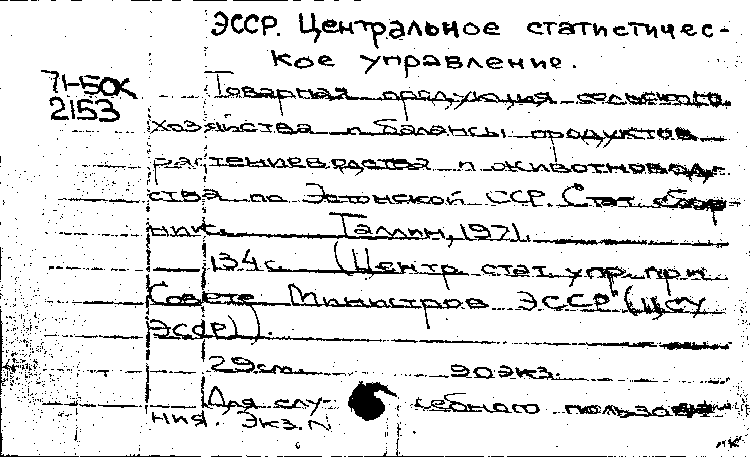 ЭССР. Центральное статистичес-
кое управление.
71-50К
2153
Товарная продукция сельского
хозяйства и балансы продуктов
растениеводства и животновод-
ства по Эстонской ССР. Стат. сбор-
ник. Таллин, 1971.
134 с. (Центр. стат. упр. при
Совете Министров ЭССР (ЦСУ
ЭССР)).
29см. 90экз.
Для слу- жебного пользова-
ния. Экз. N